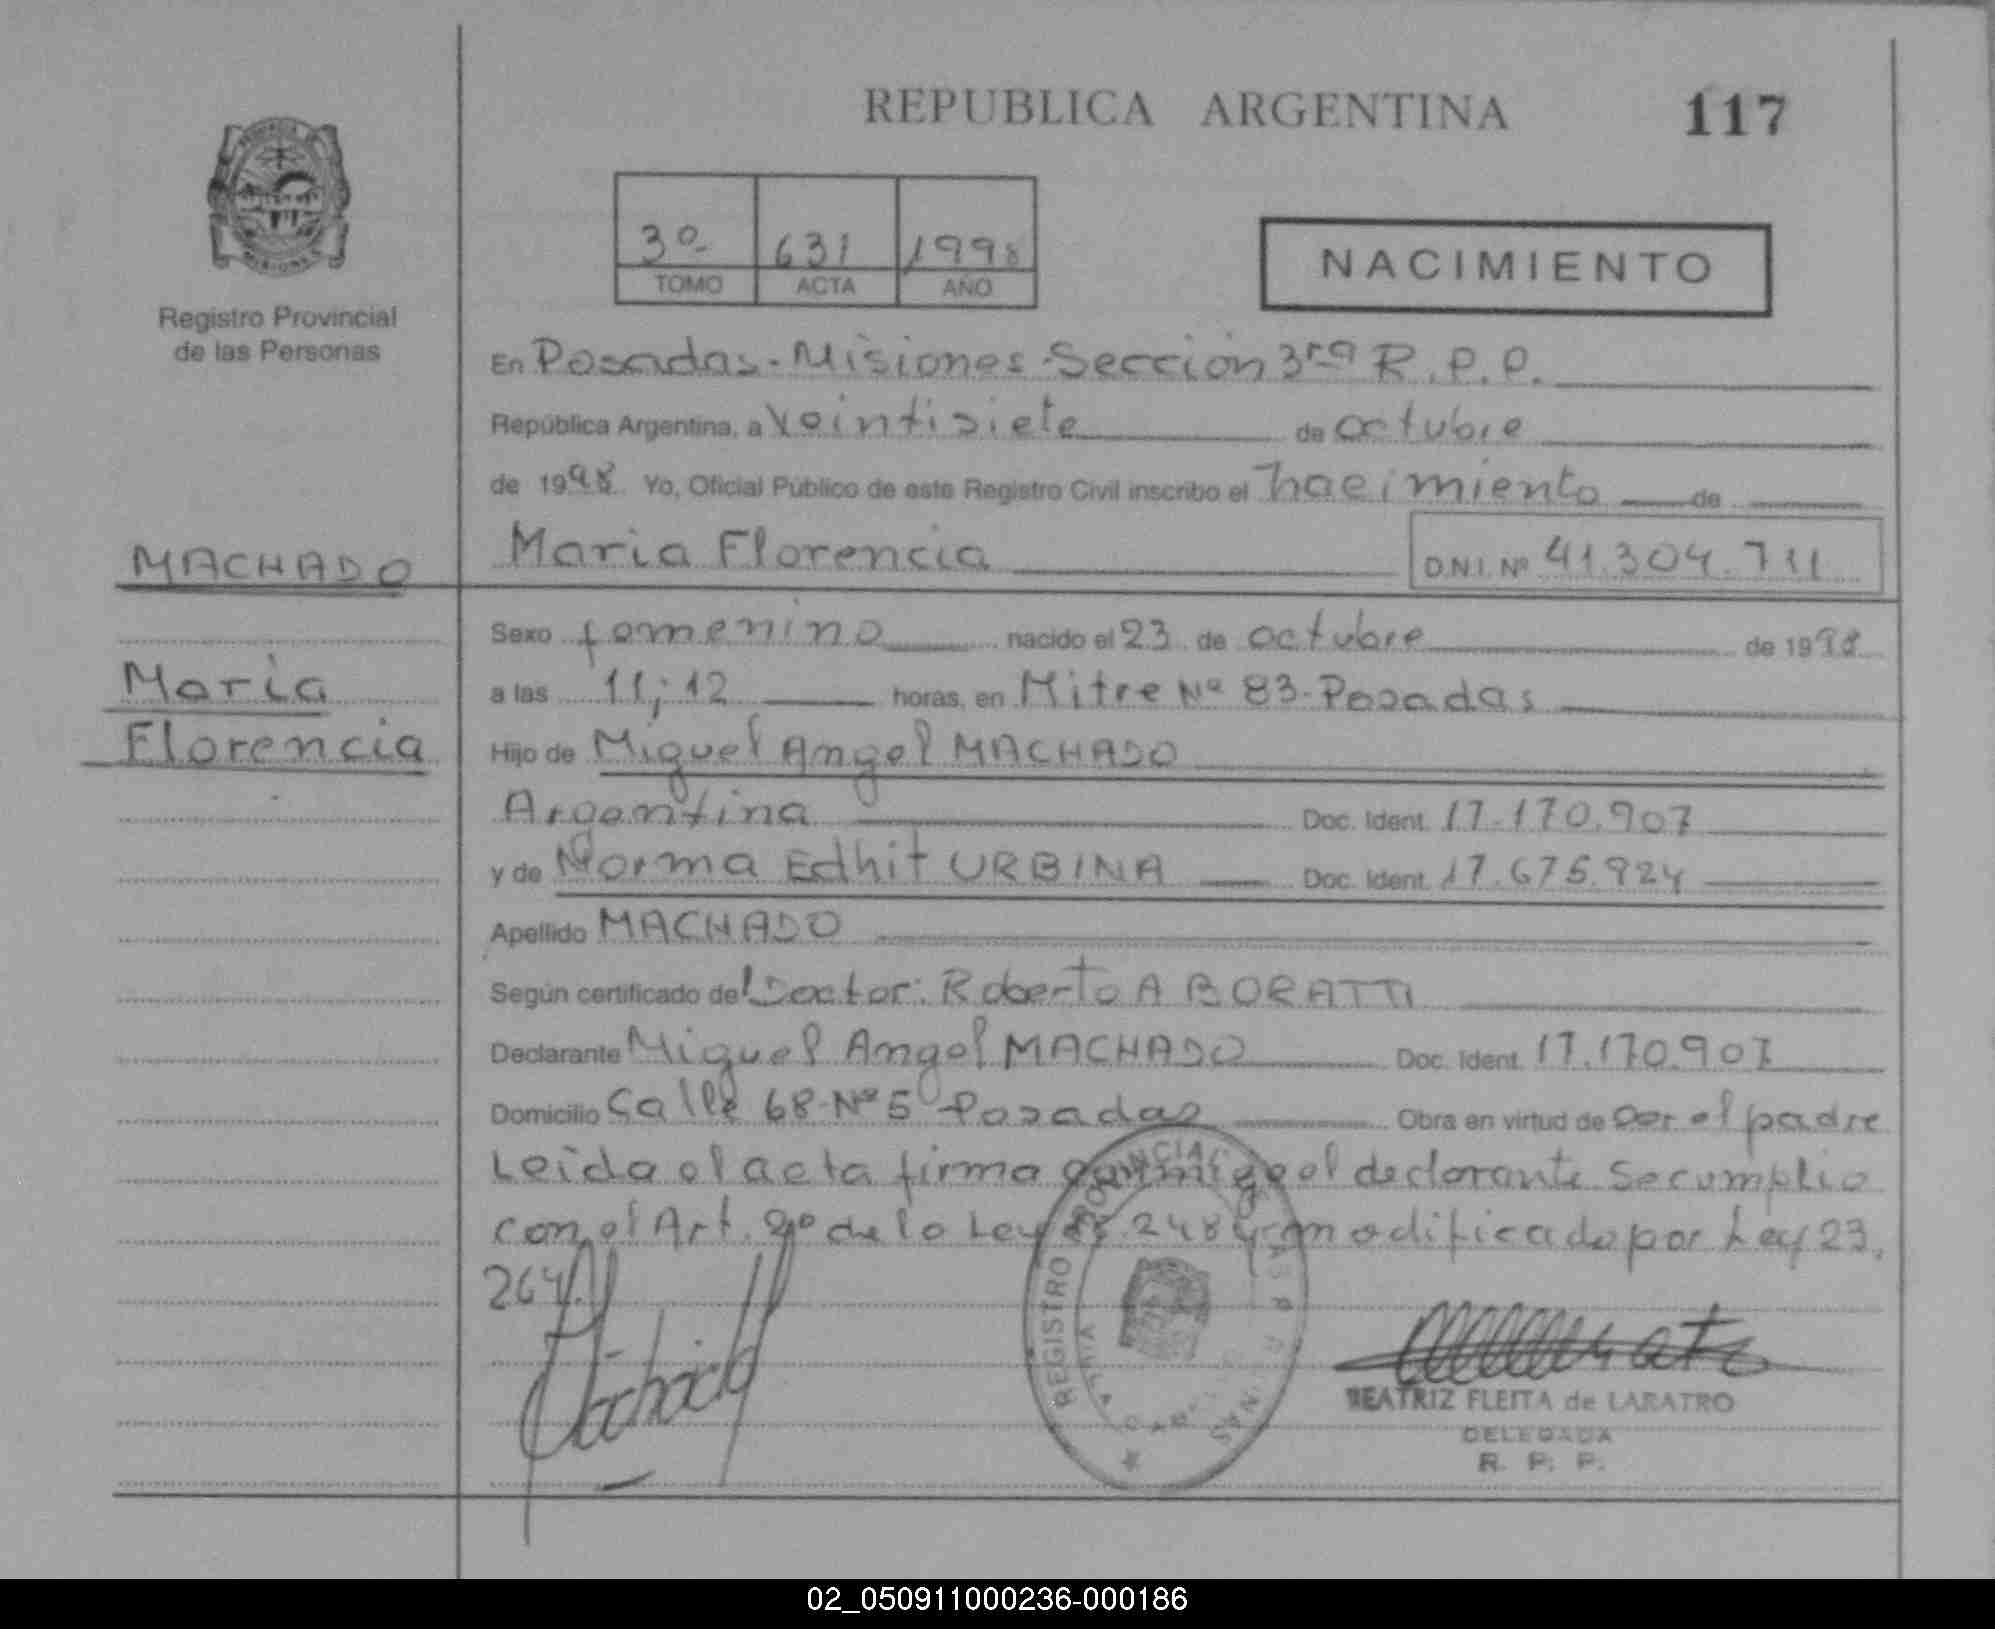 REPUBLICA ARGENTINA 117
3º 631 1998
TOMO ACTA AÑO
NACIMIENTO
Registro Provincial
de las Personas
En Posadas-Misiones-Sección 3ra R.P.P.
República Argentina, a Veintisiete de octubre
de 1998 Yo, Oficial Público de este Registro Civil inscribo el nacimiento de
MACHADO
María
Florencia
Maria Florencia D.N.I. Nº 41.304.711
Sexo femenino nacido el 23 de octubre de 1998
a las 11;12 horas, en Mitre Nº 83-Posadas
Hijo de Miguel Angel MACHADO
Argentina Doc. Ident. 17.170.907
y de Norma Edhit URBINA Doc. Ident. 17.675.924
Apellido MACHADO
Según certificado del Doctor: Roberto A BORATTI
Declarante Miguel Angel MACHADO Doc. Ident. 17.170.907
Domicilio Calle 68-Nº5 Posadas Obra en virtud de ser el padre
Leida el acta firma conmigo el declarante Se cumplio
con el Art. 2º de la Ley 18.248 modificado por Ley 23.
264.
REGISTRO PROVINCIAL
BEATRIZ FLEITA de LARATRO
DELEGADA
R. P. P.
02_050911000236-000186